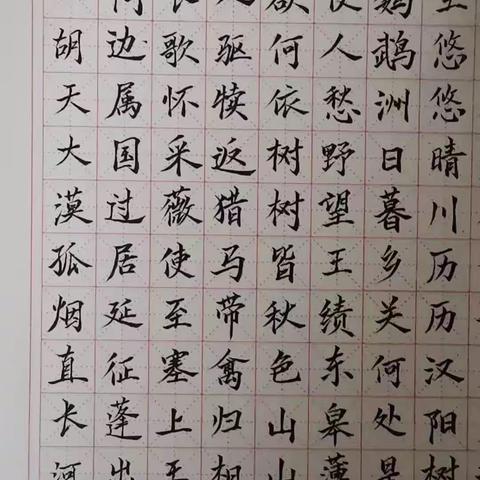 空悠悠晴川历历汉阳树
鹦鹉洲日暮乡关何处是
使人愁野望王绩东皋薄
欲何依树树皆秋色山山
人驱犊返猎马带禽归相
长歌怀采薇使至塞上王
问边属国过居延征蓬出
胡天大漠孤烟直长河